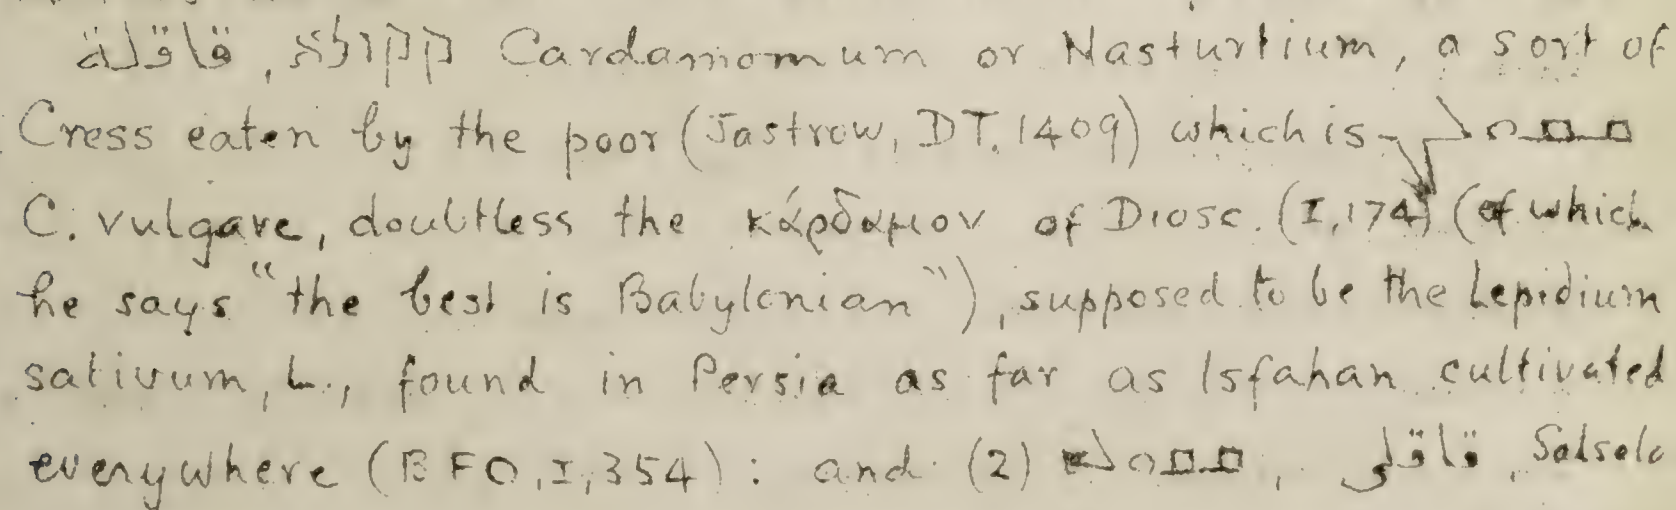 قاقلة, קקולא Cardamomum or Nasturtium, a sort of
Cress eaten by the poor (Jastrow, DT. 1409) which is ܩܩܘܠܐ
C. vulgare, doubtless the κάρδαμον of Diosc. (I, 174) (of which
he says "the best is Babylonian"), supposed to be the Lepidium
sativum, L., found in Persia as far as Isfahan cultivated
everywhere (BFO, I, 354): and (2) , قاقلى, Salsola